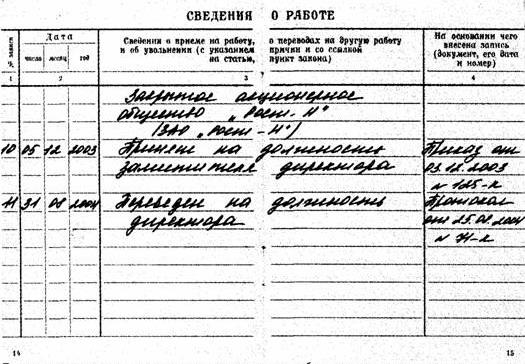 СВЕДЕНИЯ О РАБОТЕ
№ записи
Дата
число месяц год
Сведения о приеме на работу, о переводах на другую работу
и об увольнении (с указанием причин и со ссылкой
на статью, пункт закона)
На основании чего
внесена запись
(документ, его дата
и номер)
1 2 3 4
Закрытое акционерное
общество „Рост-Н"
(ЗАО „Рост-Н")
10 05 12 2003 Принят на должность Приказ от
заместителя директора 03.12.2003
№ 125-к
11 31 08 2004 Переведен на должность Протокол
директора от 25.08.2004
№ 71-к
14 15